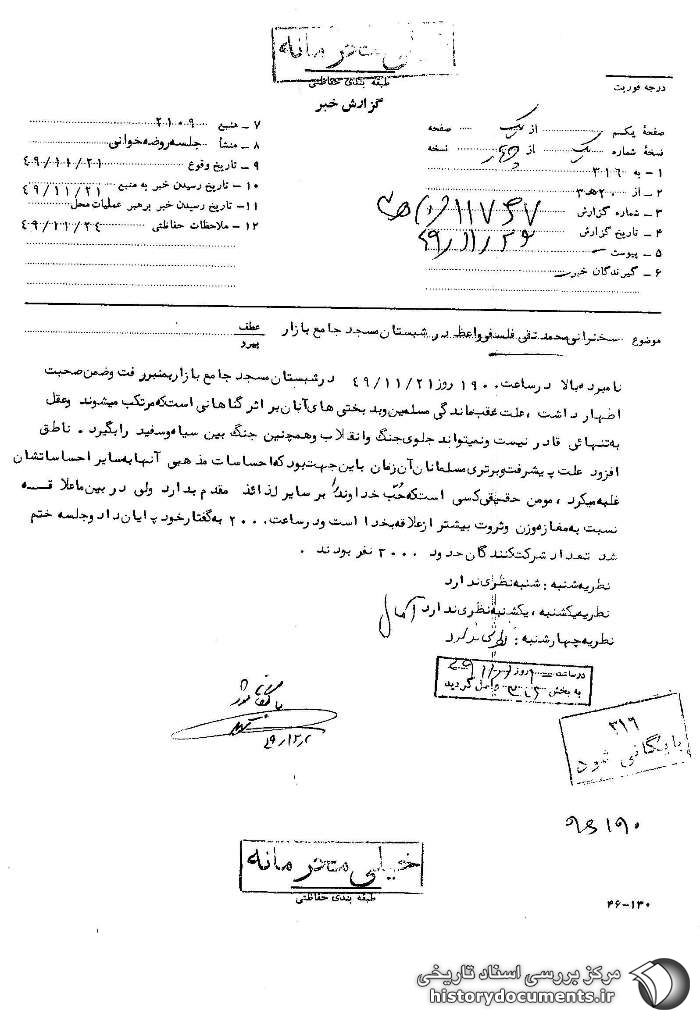 خیلی محرمانه
طبقه بندی حفاظتی
گزارش خبر
درجه فوریت
صفحهٔ یکم از یک صفحه
نسخهٔ شماره یک از چهار نسخه
۱ - به ۳۱۶
۲ - از ۲۰ ه‍ ۳
۳ - شماره گزارش ۱۱۷۴۷
۴ - تاریخ گزارش ۴۹/۱۱/۲۶
۵ - پیوست
۶ - گیرندگان خبر
۷ - منبع ۲۱۰۹
۸ - منشأ جلسه روضه خوانی
۹ - تاریخ وقوع ۴۹/۱۱/۲۱
۱۰ - تاریخ رسیدن خبر به منبع ۴۹/۱۱/۲۱
۱۱ - تاریخ رسیدن خبر برهبر عملیات محل ۴۹/۱۱/۲۴
۱۲ - ملاحظات حفاظتی
موضوع سخنرانی محمد تقی فلسفی واعظ در شبستان مسجد جامع بازار
عطف
پیرو
نامبرده بالا در ساعت ۱۹۰۰ روز ۴۹/۱۱/۲۱ در شبستان مسجد جامع بازار بمنبر رفت وضمن صحبت
اظهار داشت ، علت عقب ماندگی مسلمین وبد بختی های آنان بر اثر گناهانی است که مرتکب میشوند وعقل
به تنهائی قادر نیست ونمیتواند جلوی جنگ وانقلاب وهمچنین جنگ بین سیاه وسفید رابگیرد . ناطق
افزود علت پیشرفت وبرتری مسلمانان آن زمان باین جهت بود که احساسات مذهبی آنها به سایر احساساتشان
غلبه میکرد ، مومن حقیقی کسی است که حُبّ خداوند را بر سایر لذائذ مقدم بدارد ولی در بین ما علاقه
نسبت به مغازه وزن وثروت بیشتر از علاقه بخدا است ودر ساعت ۲۰۰۰ به گفتار خود پایان داد و جلسه ختم
شد تعداد شرکت کنندگان حدود ۲۰۰۰ نفر بودند .
نظریه شنبه : شنبه نظری ندارد
نظریه یکشنبه ، یکشنبه نظری ندارد
نظریه چهارشنبه : نظری ندارد
در ساعت روز
به بخش واصل گردید
۳۱۶
بایگانی شود
خیلی محرمانه
طبقه بندی حفاظتی
۴۶-۱۳۰
مرکز بررسی اسناد تاریخی
historydocuments.ir